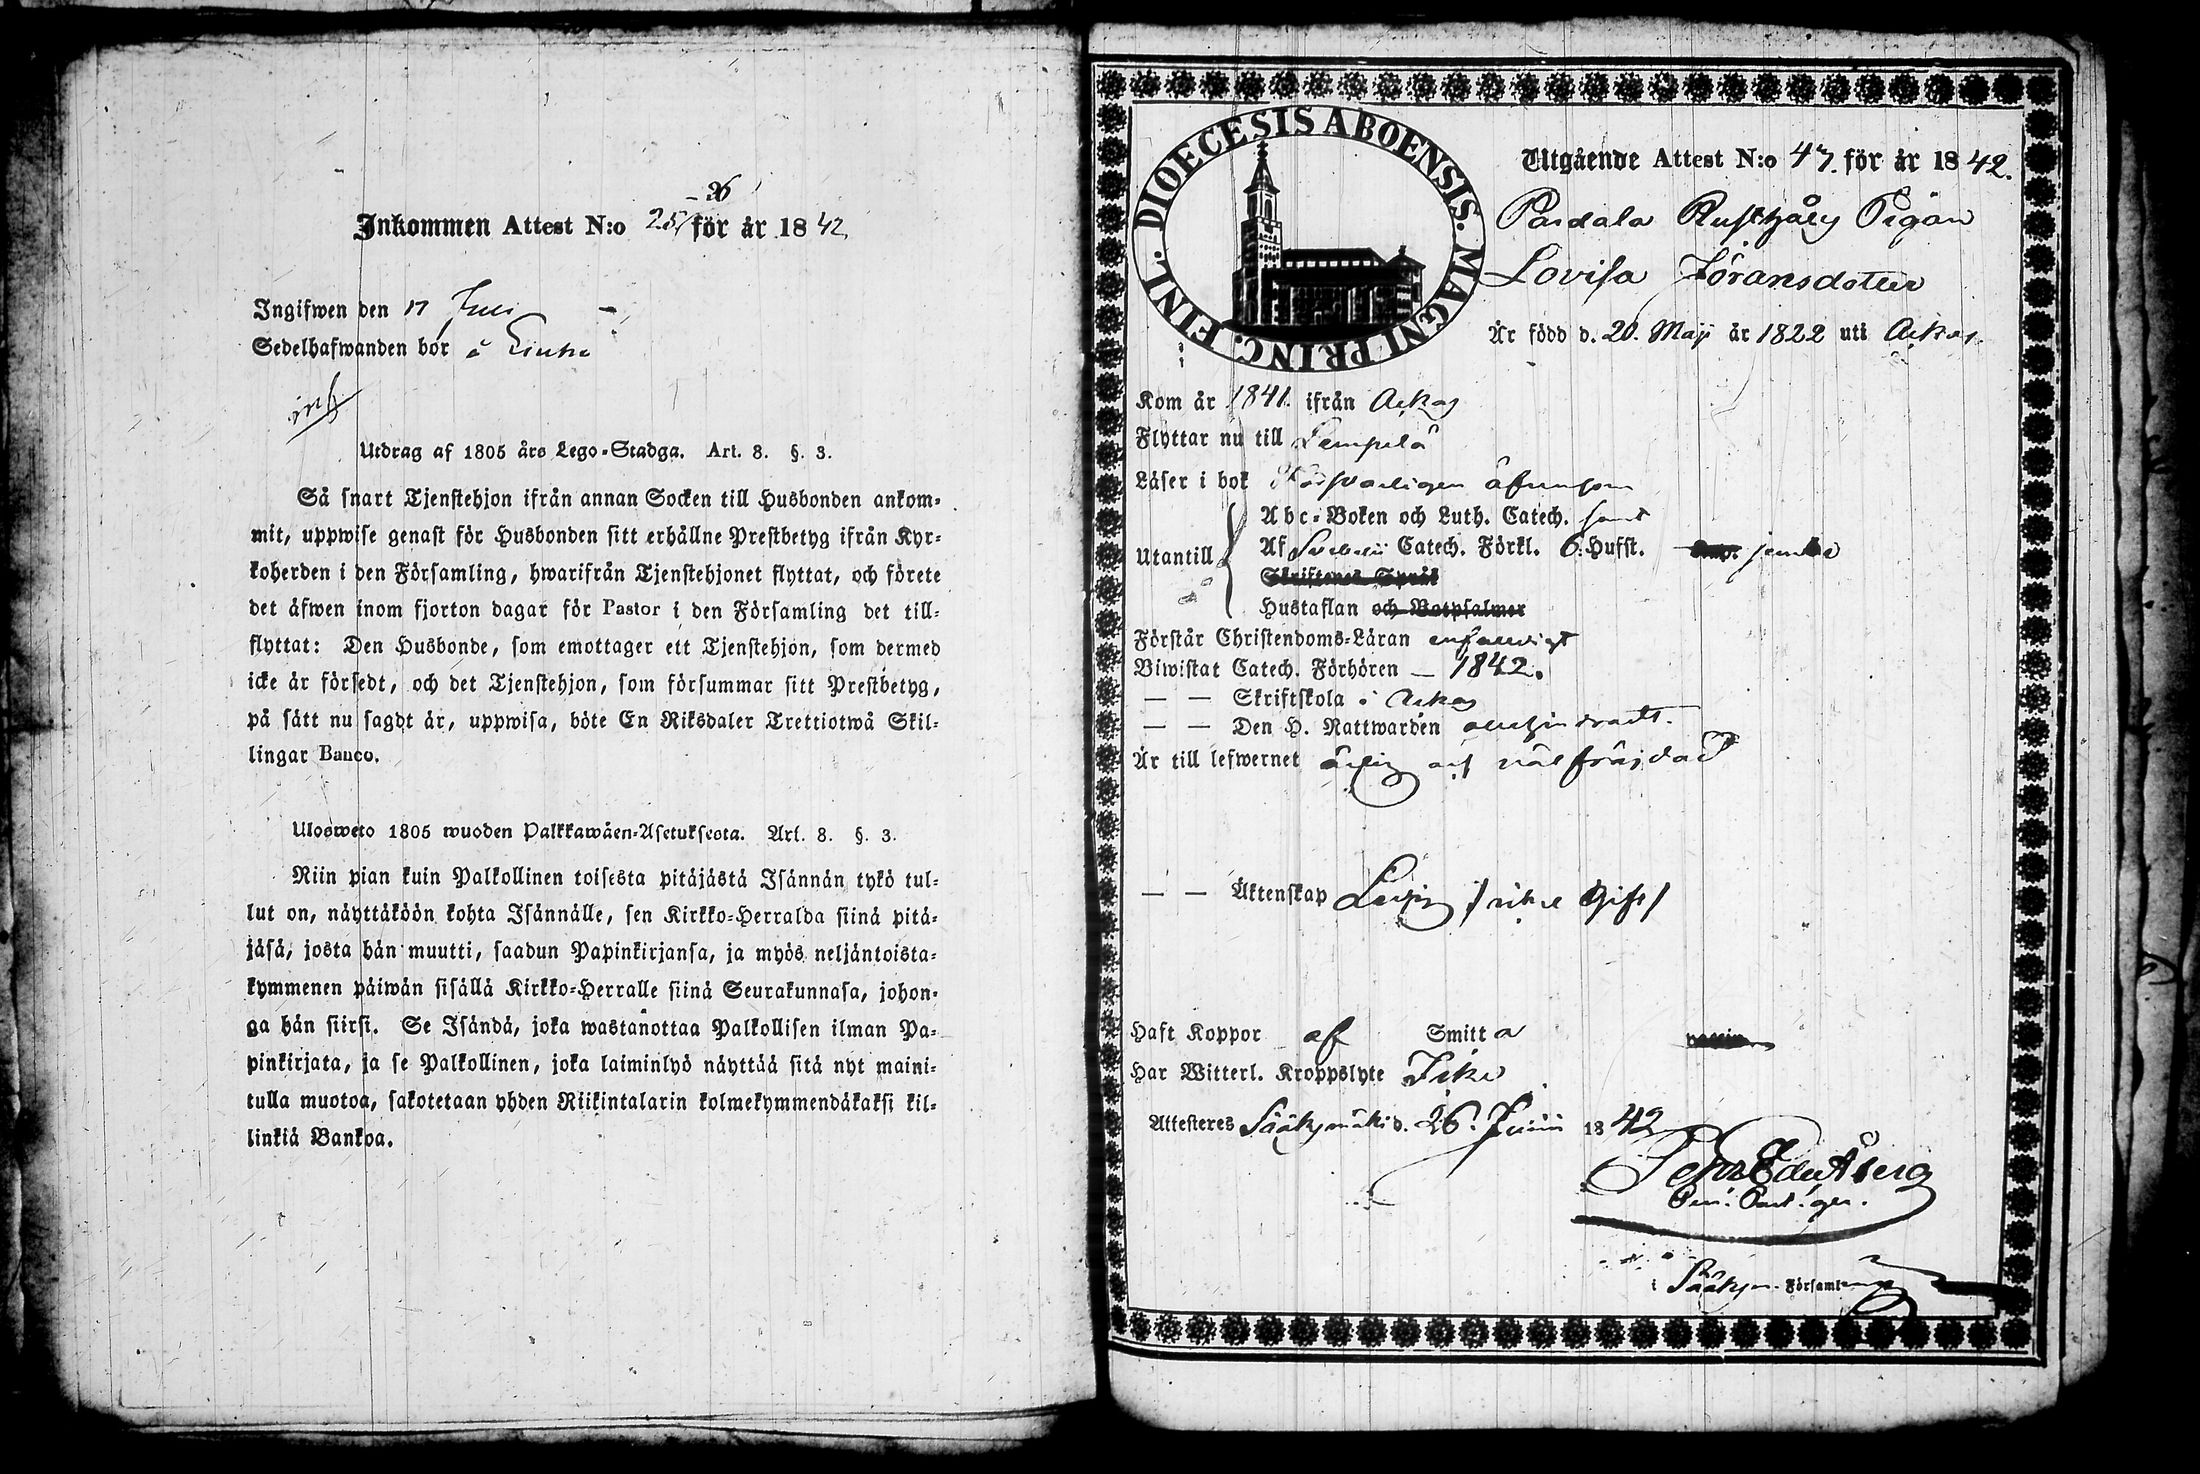 Inkommen Attest N:o 25/26 för år 1842.
Ingifwen den 17 Juli
Sedelhafwanden bor å
Utdrag af 1805 års Lego-Stadga. Art. 8. §. 3.
Så snart Tjenstehjon ifrån annan Socken till Husbonden ankom-
mit, uppwise genast för Husbonden sitt erhållne Prestbetyg ifrån Kyr-
koherden i den Församling, hwarifrån Tjenstehjonet flyttat, och förete
det äfwen inom fjorton dagar för Pastor i den Församling det till-
flyttat: Den Husbonde, som emottager ett Tjenstehjon, som dermed
icke är försedt, och det Tjenstehjon, som försummar sitt Prestbetyg,
på sätt nu sagdt är, uppwisa, böte En Riksdaler Trettiotwå Skil-
lingar Banco.
Ulosweto 1805 wuoden Palkkawäen-Asetuksesta. Art. 8. §. 3.
Niin pian kuin Palkollinen toisesta pitäjästä Isännän tykö tul-
lut on, näyttäköön kohta Isännälle, sen Kirkko-Herralda siinä pitä-
jäsä, josta hän muutti, saadun Papinkirjansa, ja myös neljäntoista-
kymmenen päiwän sisällä Kirkko-Herralle siinä Seurakunnasa, johon-
ga hän siirsi. Se Isändä, joka wastanottaa Palkollisen ilman Pa-
pinkirjata, ja se Palkollinen, joka laiminlyö näyttää sitä nyt maini-
tulla muotoa, sakotetaan yhden Riikintalarin kolmekymmendäkaksi kil-
linkiä Bankoa.
DIOECESIS ABOENSIS. MAGNI PRINC. FINL.
Utgående Attest N:o 47. för år 1842.
Pardala Rusthålls Pigan
Lovisa Jöransdotter
Är född d. 20. Maji år 1822 uti Ackas.
Kom år 1841. ifrån Ackas
Flyttar nu till Lempelä
Läser i bok Försvarligen
Utantill
Abc-Boken och Luth. Catech. samt
Af Svebelii Catech. Förkl. 6. Hufst. jemte
Skriftenes Språk
Hustaflan och Botpsalmer
Förstår Christendoms-Läran enfaldigt
Biwistat Catech. Förhören — 1842.
— — Skriftskola i Ackas
— — Den H. Nattwarden
Är till lefwernet ärlig och välfräjdad
— — Äktenskap Ledig / icke Gift /
Haft Koppor af Smitta
Har Witterl. Kroppslyte Icke
Attesteres Sääksmäki d. 26. Junii 1842
i Sääksm. Församling